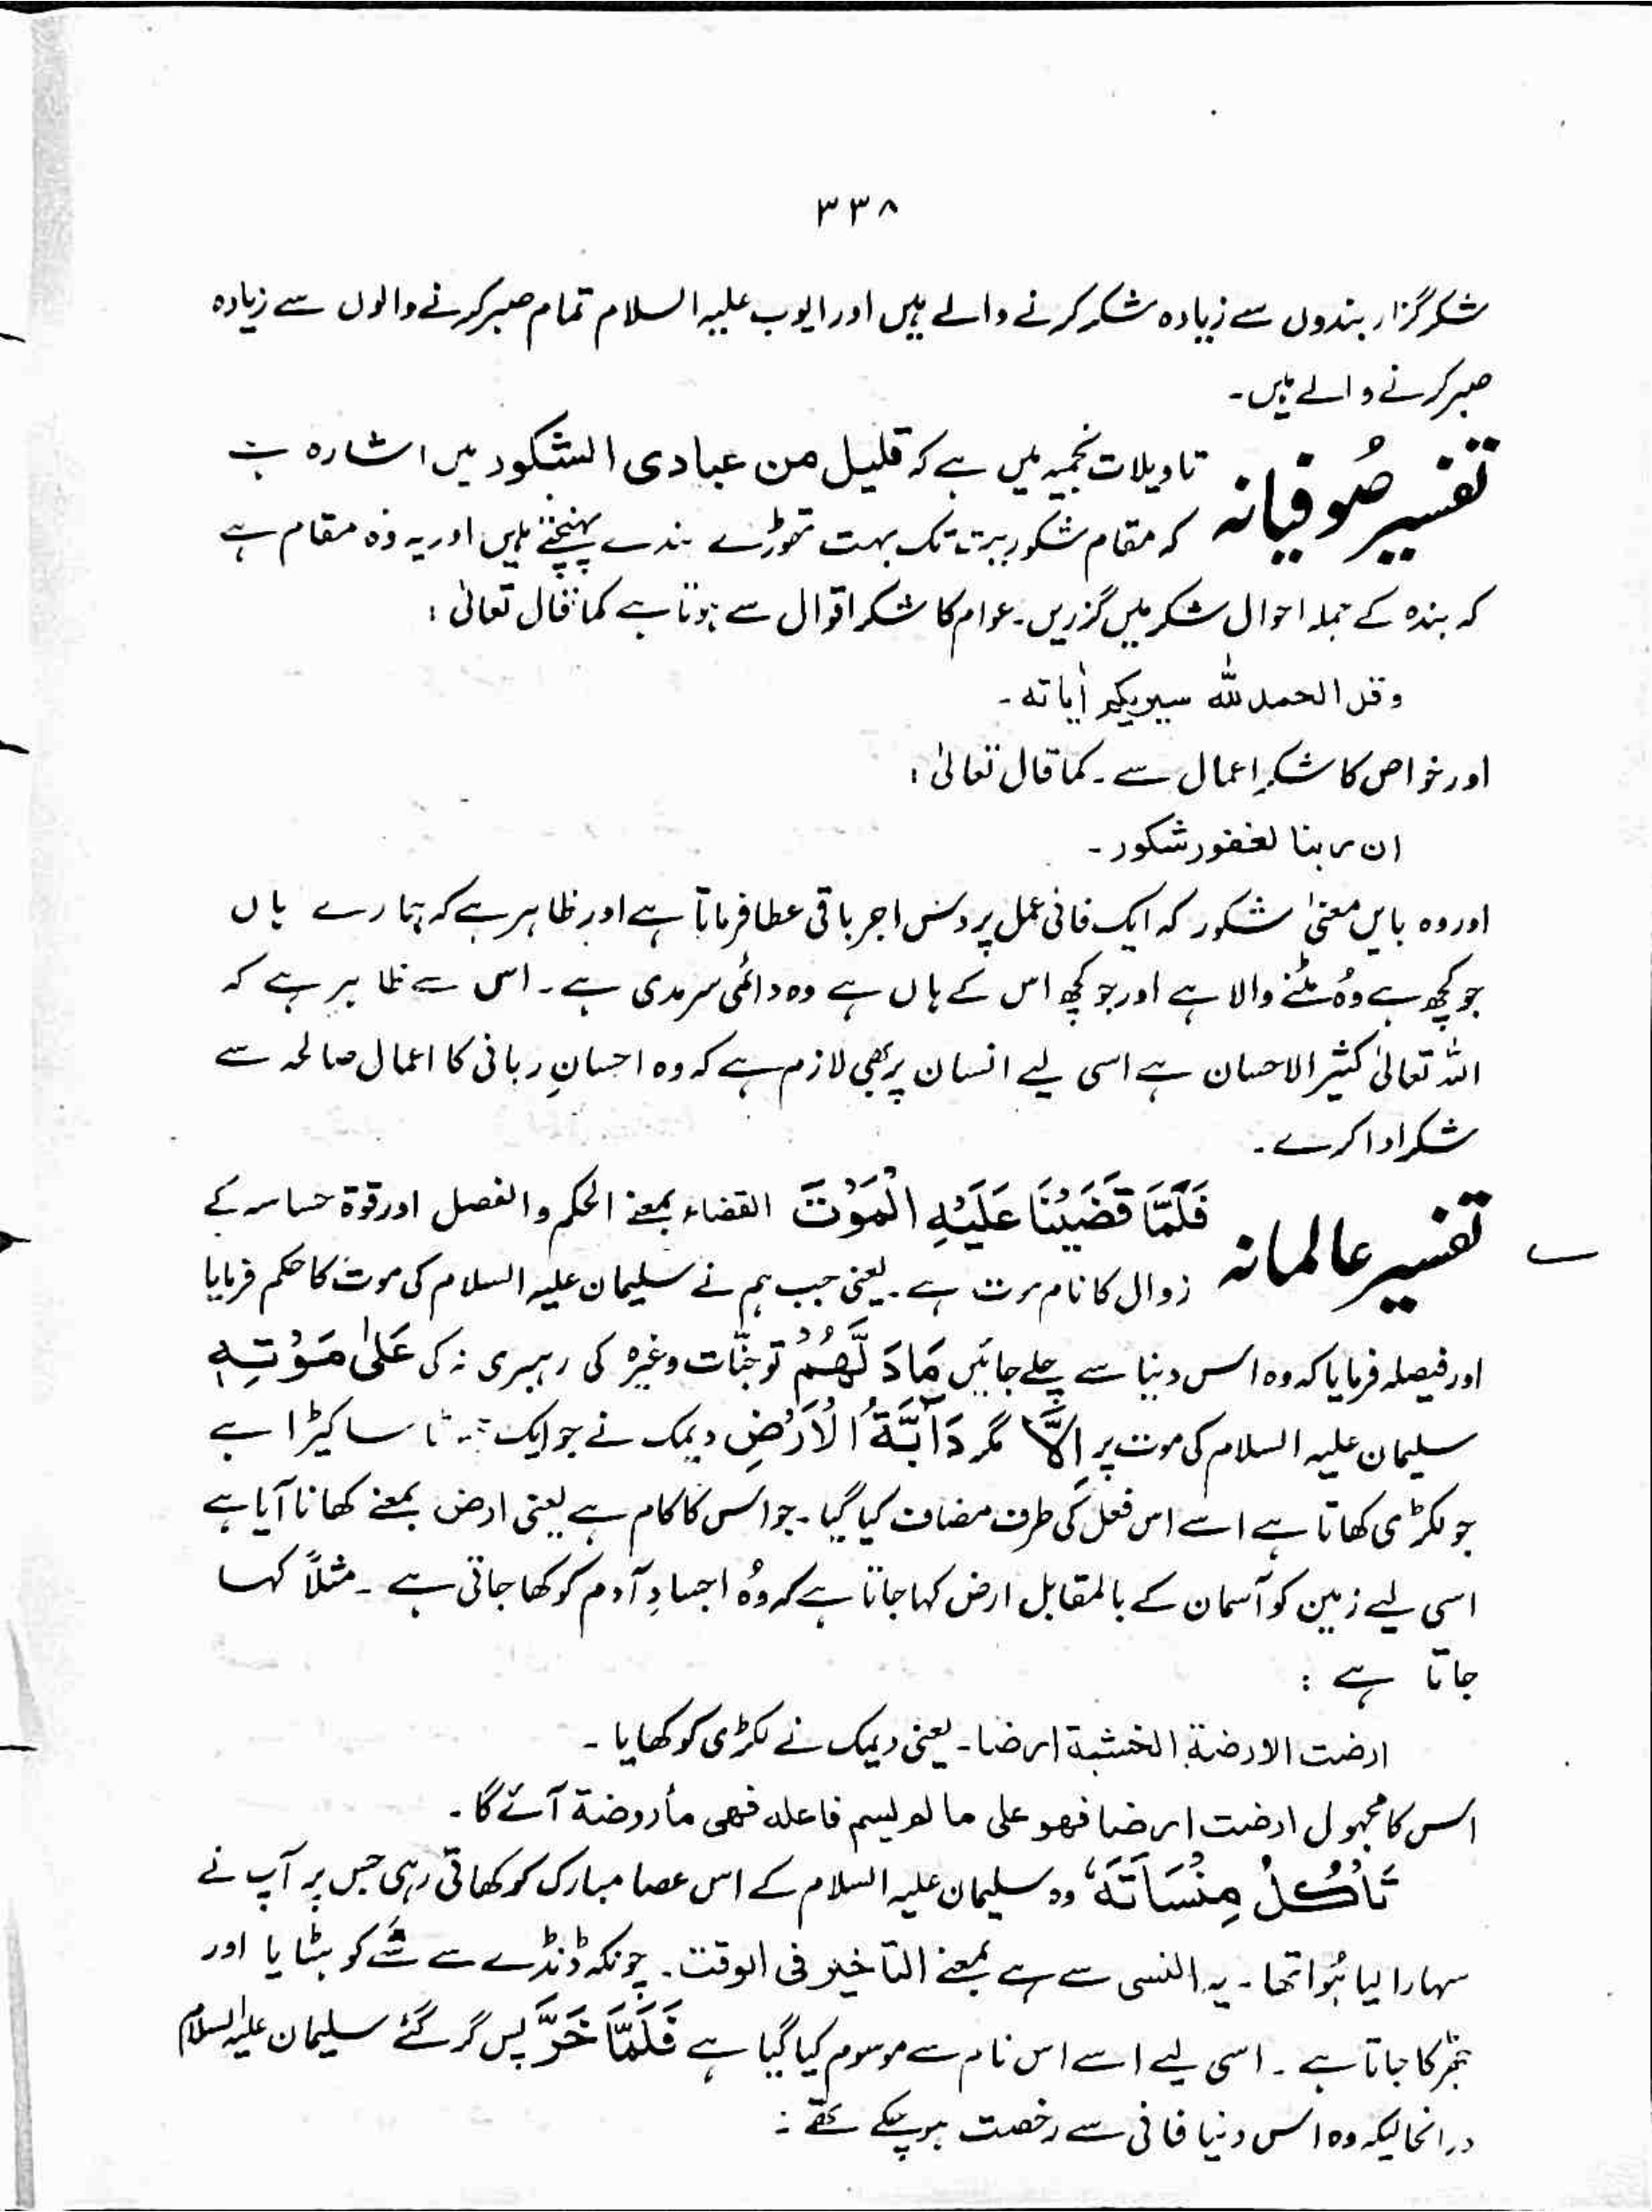 ۳۳۸
شکر گزار بندوں سے زیادہ شکر کرنے والے ہیں اور ایوب علیہ السلام تمام صبر کرنے والوں سے زیادہ
صبر کرنے والے ہیں۔
تفسیر صُوفیانہ تاویلات نجمیہ میں ہے کہ قلیل من عبادی الشکور میں اشارہ ہے
کہ مقام شکوریت تک بہت تھوڑے بندے پہنچتے ہیں اور یہ وُہ مقام ہے
کہ بندہ کے جملہ احوال شکر میں گزریں۔ عوام کا شکر اقوال سے ہوتا ہے کما قال تعالیٰ :
وقل الحمد للّٰہ سیریکم اٰیاتہ ۔
اور خواص کا شکرِ اعمال سے ۔ کما قال تعالیٰ :
ان ربنا لغفور شکور ۔
اور وہ بایں معنیٰ شکور کہ ایک فانی عمل پر دس اجر باقی عطا فرماتا ہے اور ظاہر ہے کہ ہمارے ہاں
جو کچھ ہے وُہ مٹنے والا ہے اور جو کچھ اس کے ہاں ہے وہ دائمی سرمدی ہے ۔ اس سے ظاہر ہے کہ
اللہ تعالیٰ کثیر الاحسان ہے اسی لیے انسان پر بھی لازم ہے کہ وہ احسانِ ربانی کا اعمال صالحہ سے
شکر ادا کرے ۔
تفسیر عالمانہ فَلَمَّا قَضَیْنَا عَلَیْہِ الْمَوْتَ القضاء بمعنے الحکم والفصل اور قوۃ حساسہ کے
زوال کا نام موت ہے ۔ یعنی جب ہم نے سلیمان علیہ السلام کی موت کا حکم فرمایا
اور فیصلہ فرمایا کہ وہ اس دنیا سے چلے جائیں مَا دَلَّھُمْ تو جنّات وغیرہ کی رہبری نہ کی عَلٰی مَوْتِہٖ
سلیمان علیہ السلام کی موت پر اِلَّا مگر دَآبَّۃُ الْاَرْضِ دیمک نے جو ایک سا کیڑا ہے
جو لکڑی کھاتا ہے اسے اس فعل کی طرف مضاف کیا گیا ۔ جو اس کا کام ہے یعنی ارض بمعنے کھانا آیا ہے
اسی لیے زمین کو آسمان کے بالمقابل ارض کہا جاتا ہے کہ وُہ اجسادِ آدم کو کھا جاتی ہے ۔ مثلاً کہا
جاتا ہے :
ارضت الارضۃ الخشبۃ ارضا ۔ یعنی دیمک نے لکڑی کو کھایا ۔
اس کا مجہول ارضت ارضا فھو علی ما لم یسم فاعلہ فھی مأروضۃ آئے گا ۔
تَاْکُلُ مِنْسَاَتَہٗ وہ سلیمان علیہ السلام کے اس عصا مبارک کو کھاتی رہی جس پر آپ نے
سہارا لیا ہُوا تھا ۔ یہ النسی سے ہے بمعنے التأخیر فی الوقت ۔ چونکہ ڈنڈے سے شے کو ہٹایا اور
جھڑکا جاتا ہے ۔ اسی لیے اسے اس نام سے موسوم کیا گیا ہے فَلَمَّا خَرَّ پس گر گئے سلیمان علیہ السلام
درانحالیکہ وہ اس دنیا فانی سے رخصت ہو چکے تھے :